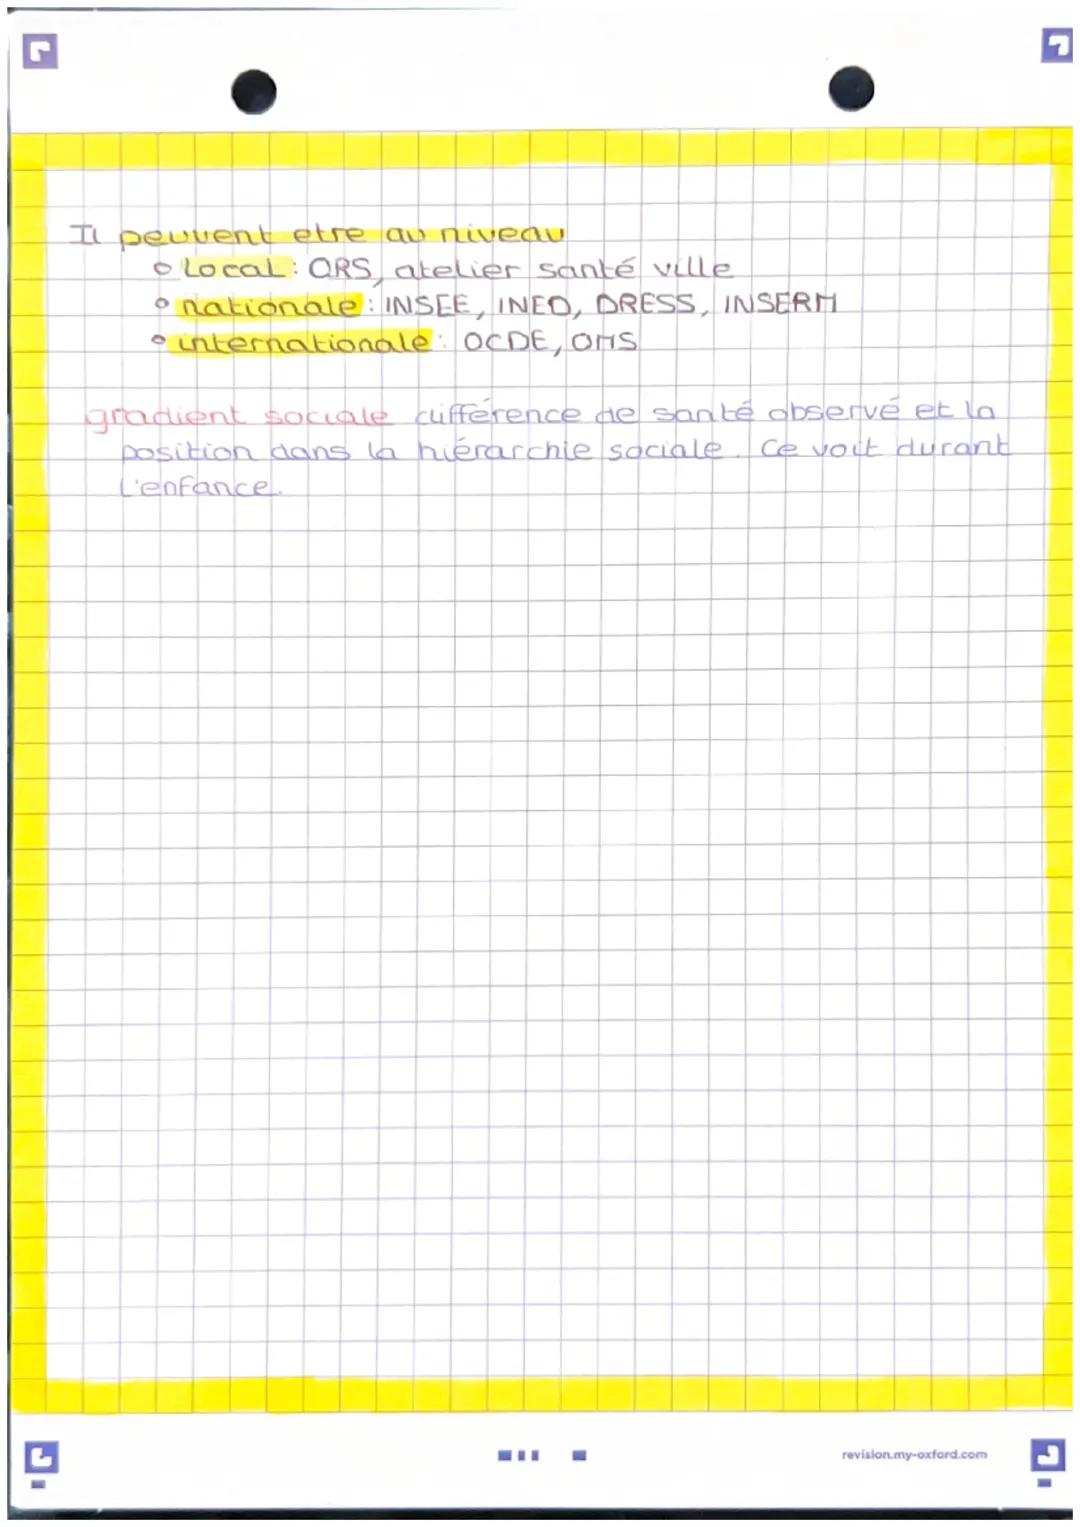 Il peuvent etre au niveau
Local : ORS, atelier santé ville
nationale : INSEE, INED, DRESS, INSERM
internationale : OCDE, OMS
gradient sociale différence de santé observé et la
position dans la hiérarchie sociale. Ce voit durant
l'enfance.
revision.my-oxford.com